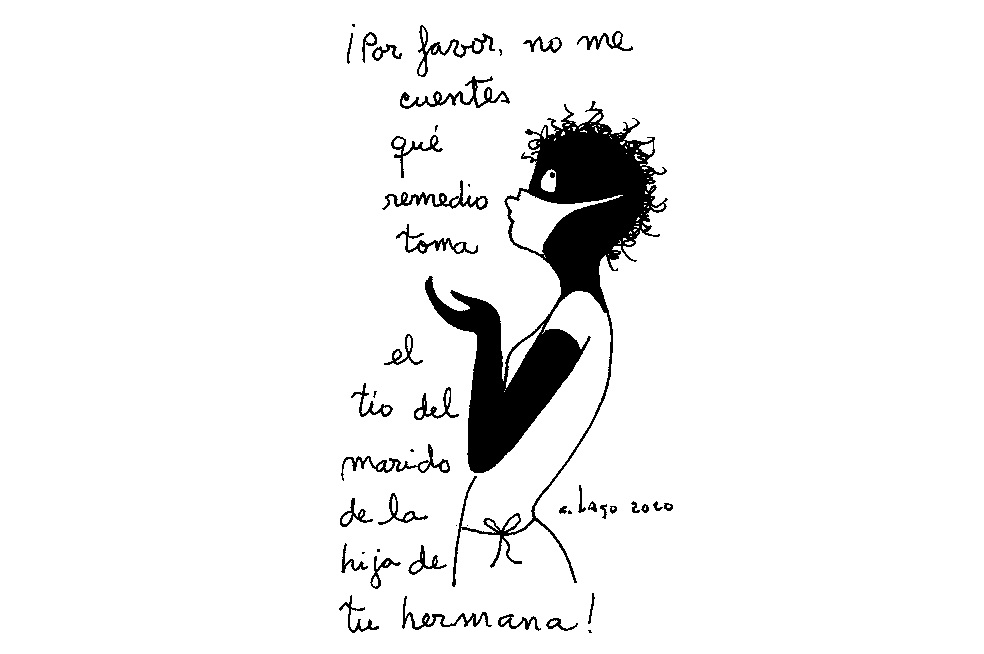 ¡Por favor, no me
cuentes
qué
remedio
toma
el
tío del
marido
de la
hija de
tu hermana!
a. Lago 2020